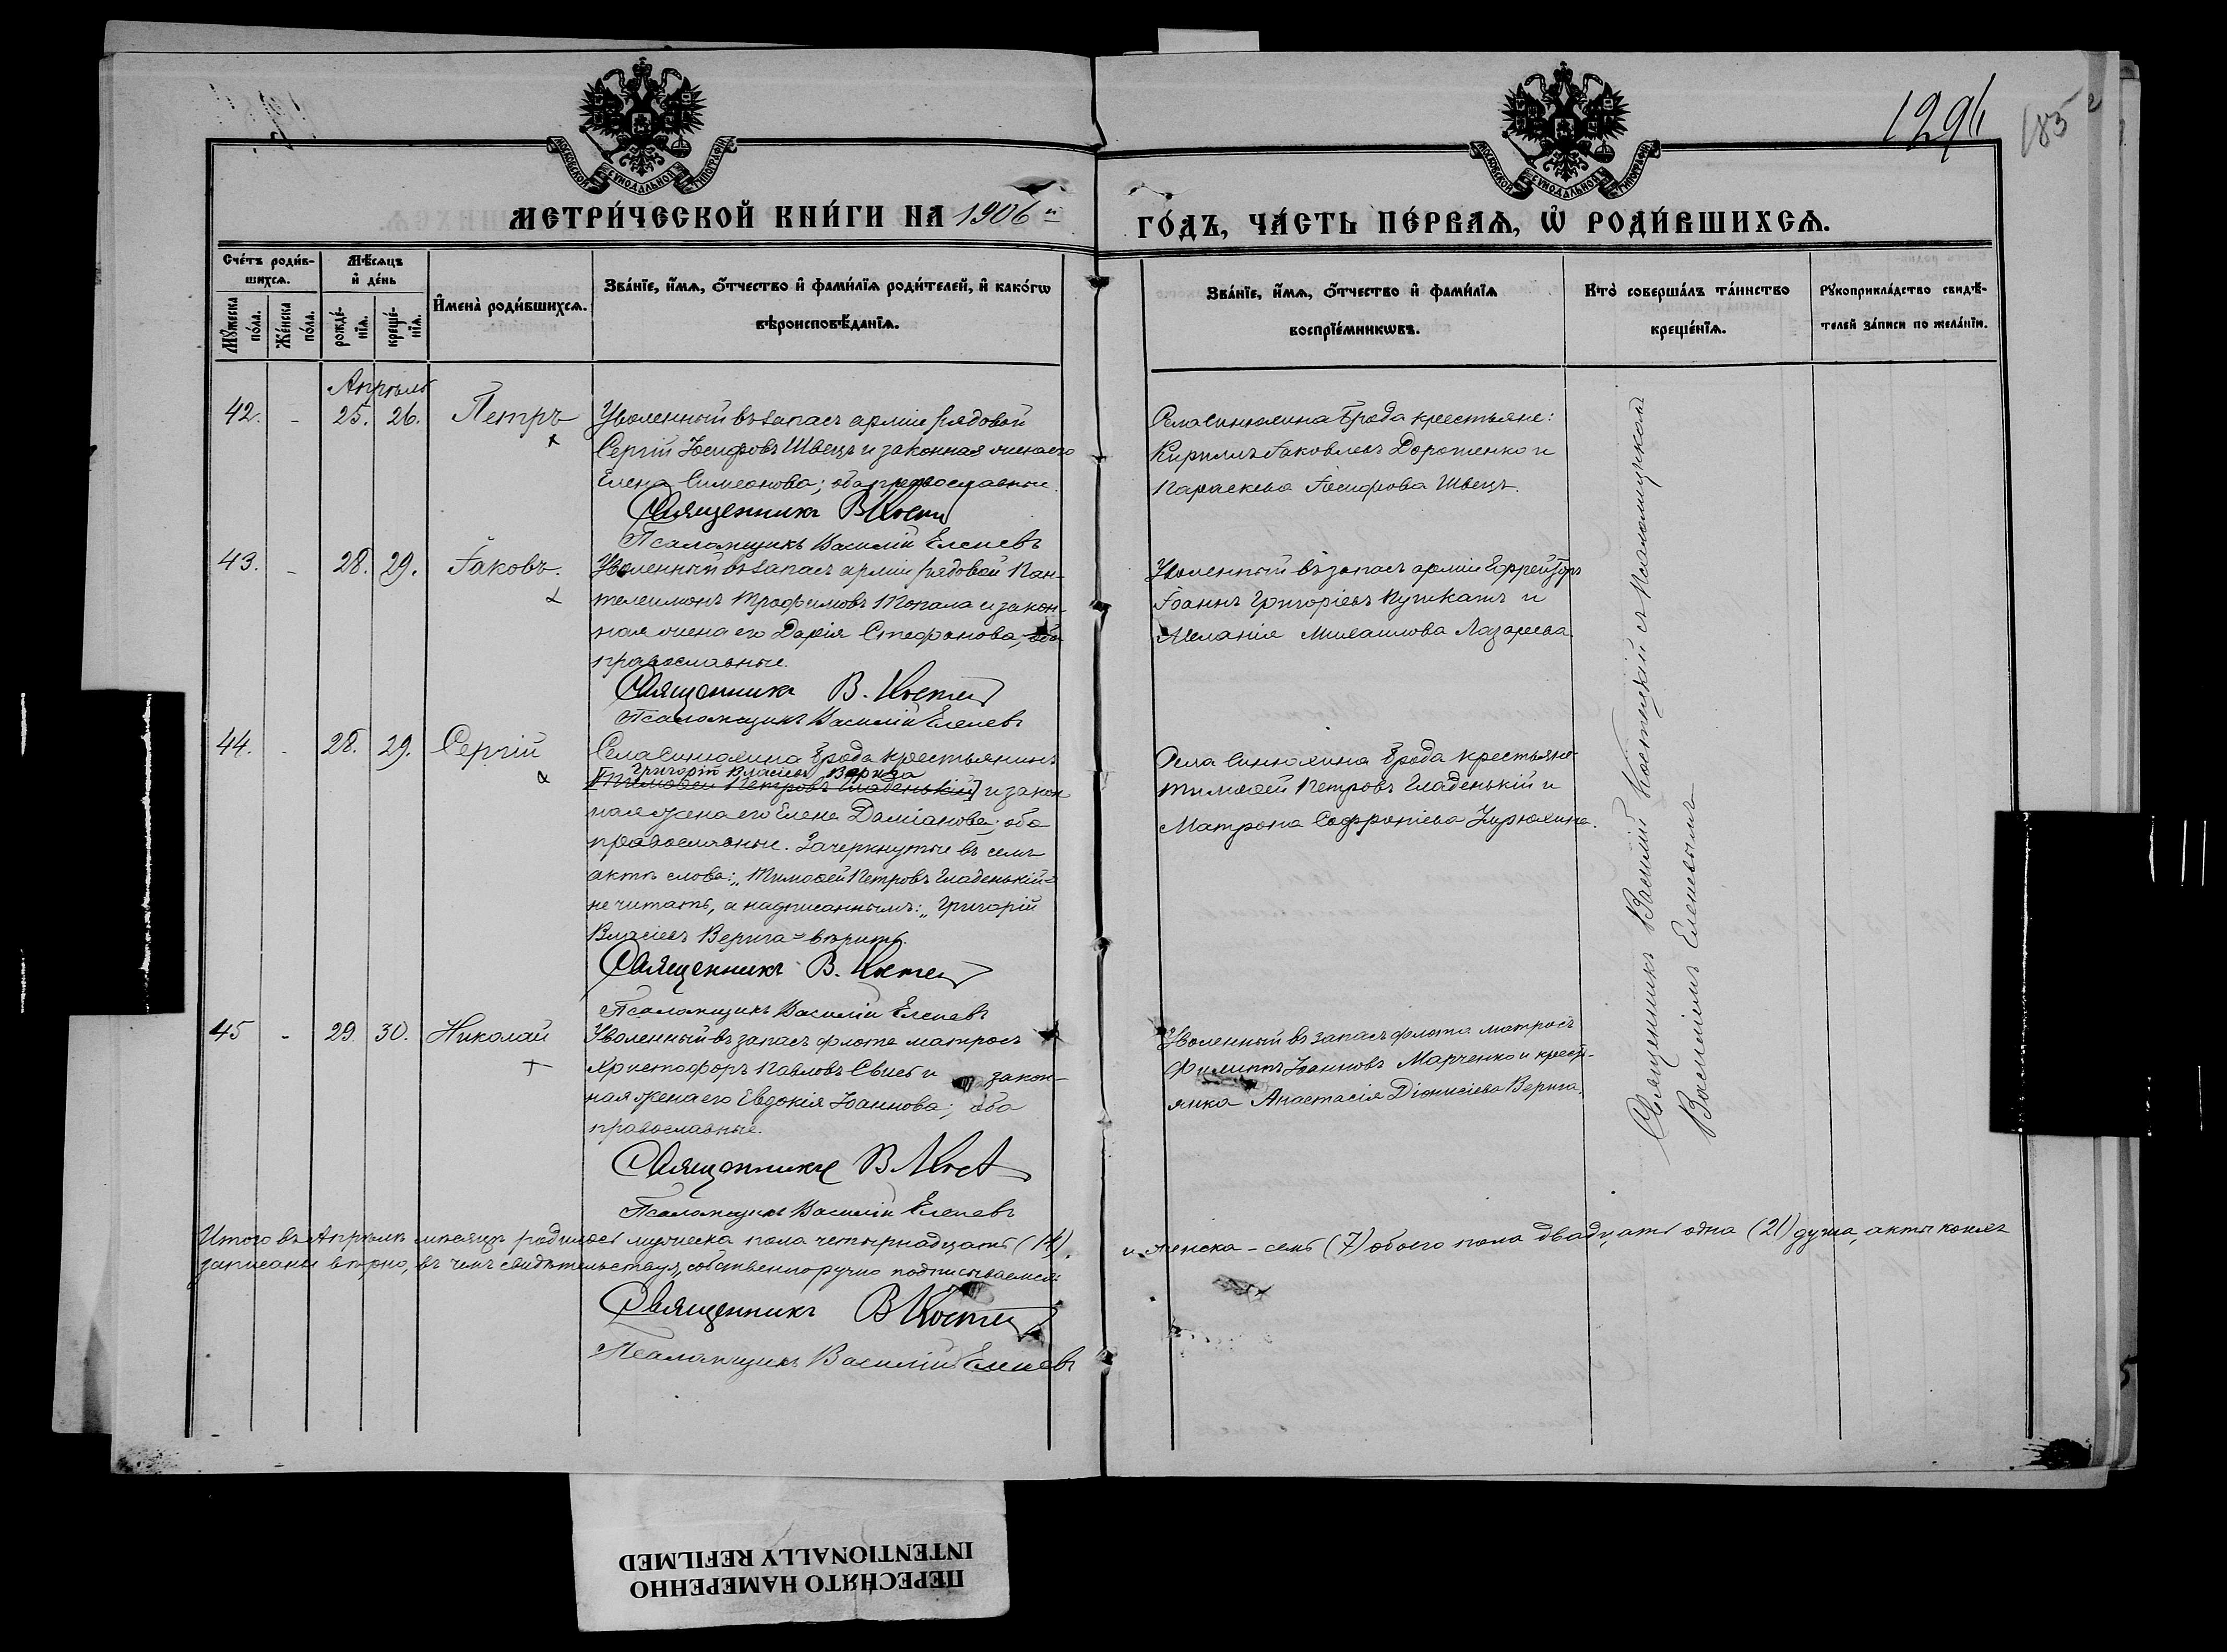 1294
185
МОСКОВСКОЙ СУНОДАЛЬНОЙ ТИПОГРАФІИ
МОСКОВСКОЙ СУНОДАЛЬНОЙ ТИПОГРАФІИ
МЕТРИ́ЧЕСКОЙ КНИ́ГИ НА 1906 й
ГО́ДЪ, ЧА́СТЬ ПЕ́РВАѦ, Ѡ҆ РОДИ́ВШИХСѦ.
Сче́тъ роди́в-
шихсѧ.
Мꙋ́жеска по́ла.
Же́нска по́ла.
Мѣ́сѧцъ
и҆ де́нь
рожде́-
нїѧ.
креще́-
нїѧ.
И҆мена̀ роди́вшихсѧ.
Зва́нїе, и҆́мѧ, ѻ҆́тчество и҆ фами́лїѧ роди́телей, и҆ како́гѡ
вѣроисповѣ́данїѧ.
Зва́нїе, и҆́мѧ, ѻ҆́тчество и҆ фами́лїѧ
воспрїе́мникѡвъ.
Кто̀ соверша́лъ та́инство
креще́нїѧ.
Рꙋкоприкла́дство свидѣ́-
телей за́писи по жела́нїю.
Апрѣль
42. - 25. 26. Петръ
Уволенный въ запасъ арміи рядовой
Сергій Іосифовъ Швецъ и законная жена его
Елена Симеонова; оба православные.
Священникъ В Кост
Псаломщикъ Василій Еленевъ
Села Синюхина Брода крестьяне:
Кириллъ Іаковлевъ Дорошенко и
Параскева Іосифова Швецъ.
43. - 28. 29. Іаковъ.
Уволенный въ запасъ арміи рядовой Пан-
телеимонъ Трофимовъ Топала и закон-
ная жена его Дарія Стефанова, оба
православные.
Священникъ В. Кост
Псаломщикъ Василій Еленевъ
Уволенный въ запасъ арміи Ефрейторъ
Іоаннъ Григоріевъ и
Меланія Михаилова Лазарева.
44. - 28. 29. Сергій
Села Синюхина Брода крестьянинъ
Григорій Власіевъ Верига
[Тимоѳей Петровъ Гладенькій] и закон
ная жена его Елена Даміанова; оба
православные. Зачеркнутые въ семъ
актѣ слова: „Тимоѳей Петровъ Гладенькій"
не читать, а надписаннымъ: „Григорій
Власіевъ Верига" вѣрить.
Священникъ В. Кост
Псаломщикъ Василій Еленевъ
Села Синюхина Брода крестьяне
Тимоѳей Петровъ Гладенькій и
Матрона Софроніева
45 - 29. 30. Николай
Уволенный въ запасъ флота матросъ
Христофоръ Павловъ и закон-
ная жена его Евдокія Іоаннова; оба
православные.
Священникъ В Кост
Псаломщикъ Василій Еленевъ
Уволенный въ запасъ флота матросъ
Филиппъ Іоанновъ Марченко и кресть-
янка Анастасія Діонисіева Верига.
Священникъ Василій Костецкій съ Псаломщикомъ
Василіемъ Еленевымъ
Итого въ Апрѣлѣ мѣсяцѣ родилось мужеска пола четырнадцать (14),
и женска - семь (7) обоего пола двадцать одна (21) душа, акты коихъ
записаны вѣрно, въ чемъ свидѣтельствуя, собственноручно подписываемся:
Священникъ В Кост
Псаломщикъ Василій Еленевъ
ПЕРЕСНЯТО НАМЕРЕННО
INTENTIONALLY REFILMED